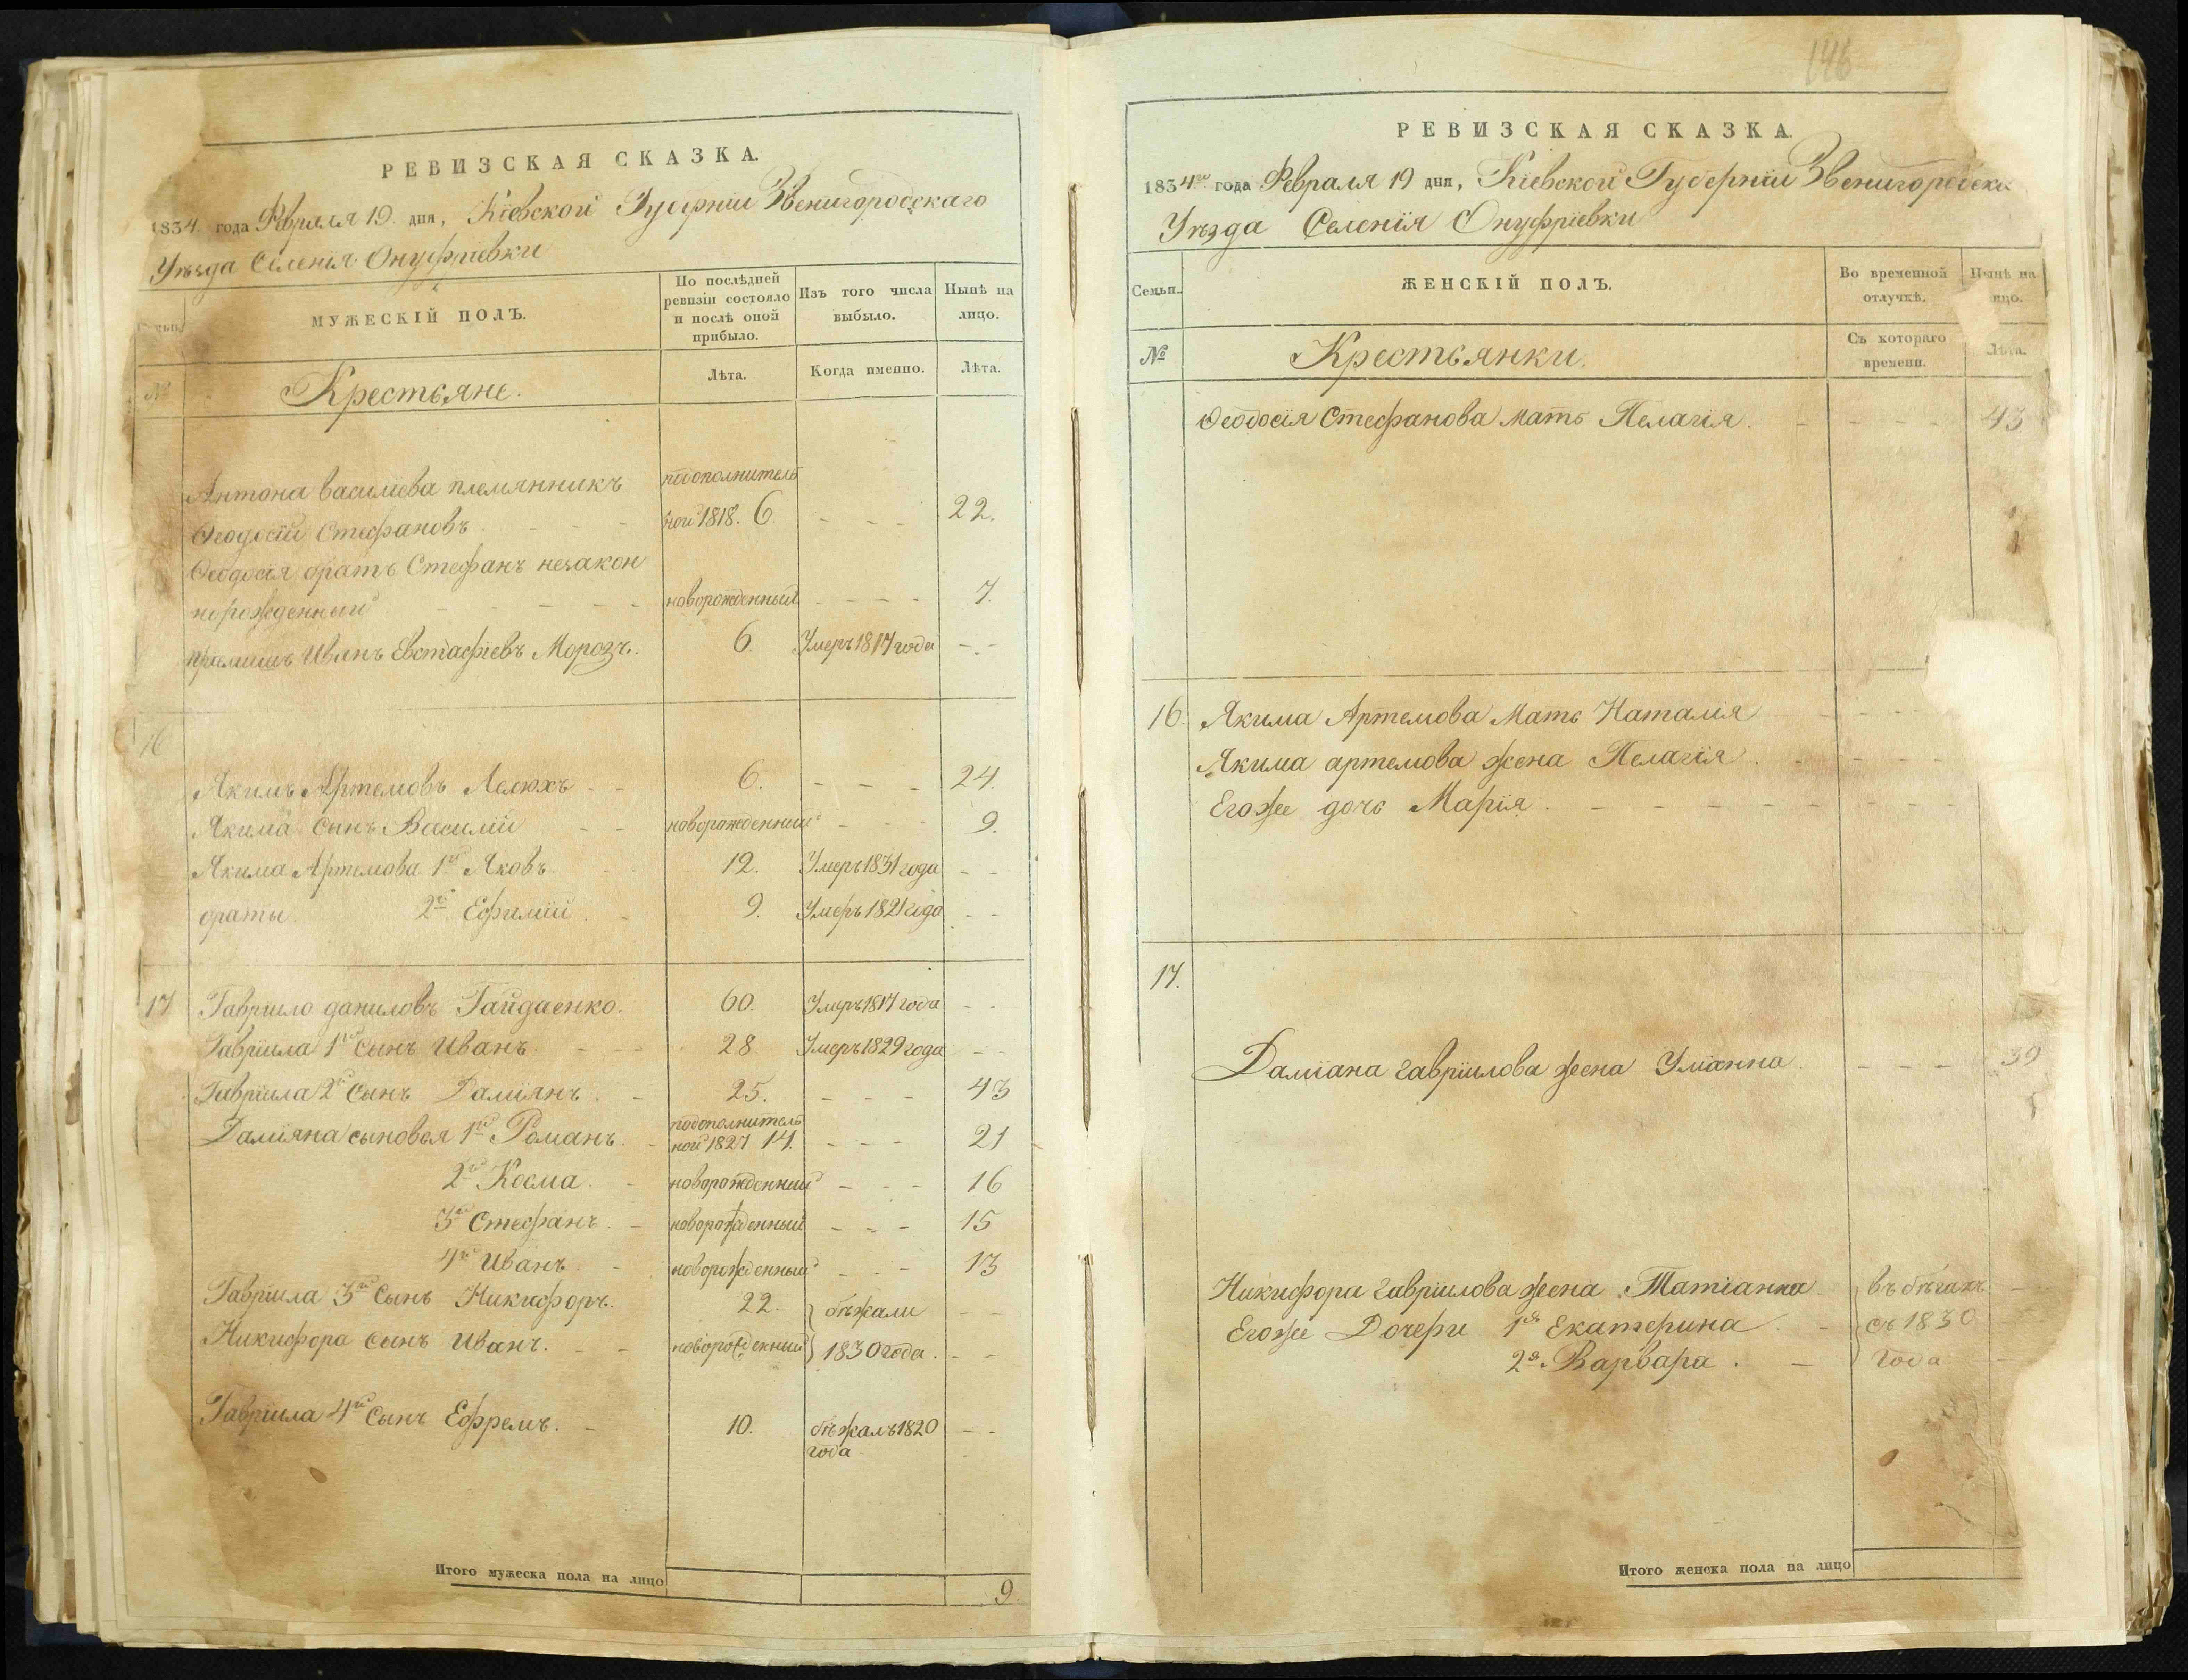 РЕВИЗСКАЯ СКАЗКА.
1834. года Февраля 19. дня, Кіевской Губерніи Звенигородскаго
Уѣзда Селенія Онуфріевки
МУЖЕСКІЙ ПОЛЪ.
По послѣдней ревизіи состояло и послѣ оной прибыло.
Изъ того числа выбыло.
Нынѣ на лицо.
№
Крестьяне.
Лѣта.
Когда именно.
Лѣта.
Антона Василіева племянникъ подополнитель
Ѳеодосій Стефановъ - - - ной 1818. 6. - - - 22.
Ѳеодосія братъ Стефанъ незакон
норожденный - - - - - новорожденный - - - - 7.
пріемышъ Иванъ Евстафіевъ Морозъ. 6. Умеръ 1817 года - -
16
Якимъ Артемовъ Лелюхъ - - 6. - - - 24.
Якима Сынъ Василій - - новорожденный - - - 9.
Якима Артемова 1й Яковъ. 12. Умеръ 1831 года - -
браты. 2й Ефимій. - 9. Умеръ 1821 года - -
17 Гавріило даниловъ Гайдаенко. 60. Умеръ 1817 года - -
Гавріила 1й сынъ Иванъ - - - 28. Умеръ 1829 года - -
Гавріила 2й Сынъ Даміянъ. - 25. - - - 43
Даміяна сыновья 1й Романъ. - подополнитель ной 1827 14. - - - 21
2й Косма. - новорожденный - - - 16
3й Стефанъ. - новорожденный - - - 15
4й Иванъ. - новорожденный - - - 13
Гавріила 3й Сынъ Никифоръ. 22. } бѣжали - -
Никифора Сынъ Иванъ. - - новорожденный } 1830 года. - -
Гавріила 4й Сынъ Ефремъ. - 10. бѣжалъ 1820 - -
года
Итого мужеска пола на лицо 9.
146
РЕВИЗСКАЯ СКАЗКА.
1834го года Февраля 19 дня, Кіевской Губерніи Звенигородска
Уѣзда Селенія Онуфріевки
Семьи.
ЖЕНСКІЙ ПОЛЪ.
Во временной отлучкѣ.
Нынѣ на лицо.
№
Крестьянки.
Съ котораго времени.
Лѣта.
Ѳеодосія Стефанова мать Пелагія. - - - - - 43
16. Якима Артемова Мать Наталія - - -
Якима артемова жена Пелагія. - - - -
Егоже дочь Марія. - - - - - - - - -
17.
Даміана гавріилова жена Уліанна. - - - 39
Никифора гавріилова жена Татіанна } въ бѣгахъ -
Егоже Дочери 1я Екатерина. - } съ 1830
2я Варвара. - } года -
Итого женска пола на лицо